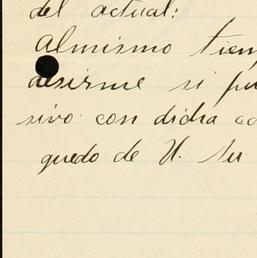 del actual:
Al mismo tiem
si pu
sivo con dicha co
quedo de U. su